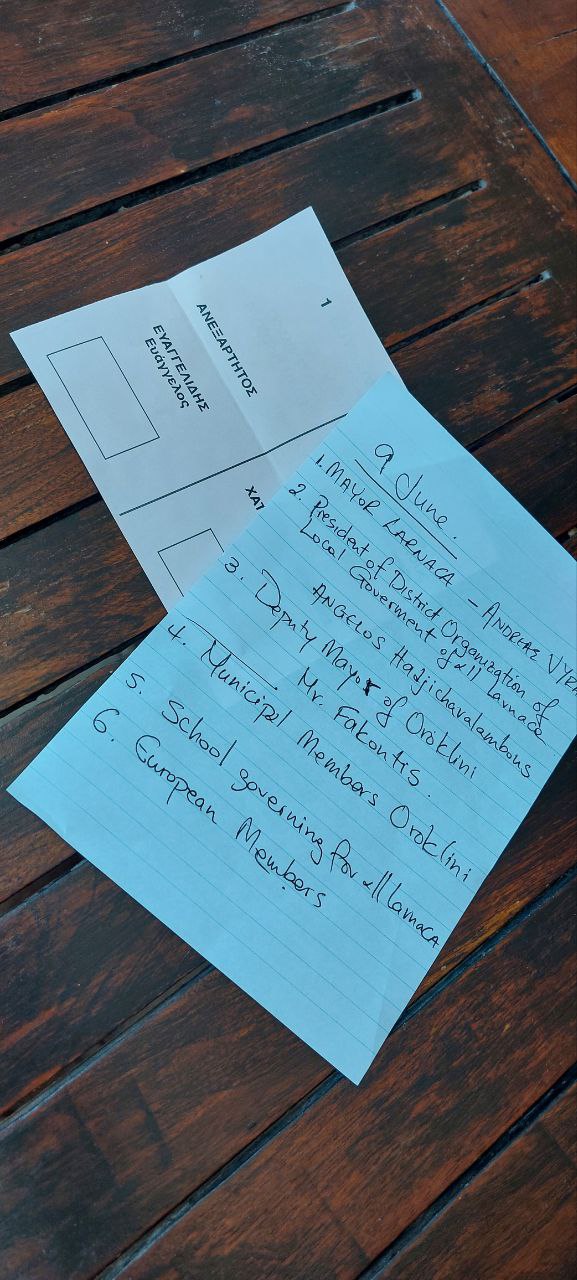 1
ΑΝΕΞΑΡΤΗΤΟΣ
ΕΥΑΓΓΕΛΙΔΗΣ
Ευάγγελος
ΧΑΤ
9 June.
1. MAYOR LARNACA – ANDREAS VYRA
2. President of District Organization of
Local Goverment of all Larnaca
ANGELOS Hadjicharalambous
3. Deputy Mayor of Oroklini
Mr. Fakontis.
4. Municipal Members Oroklini
5. School governing for all Larnaca
6. European Members